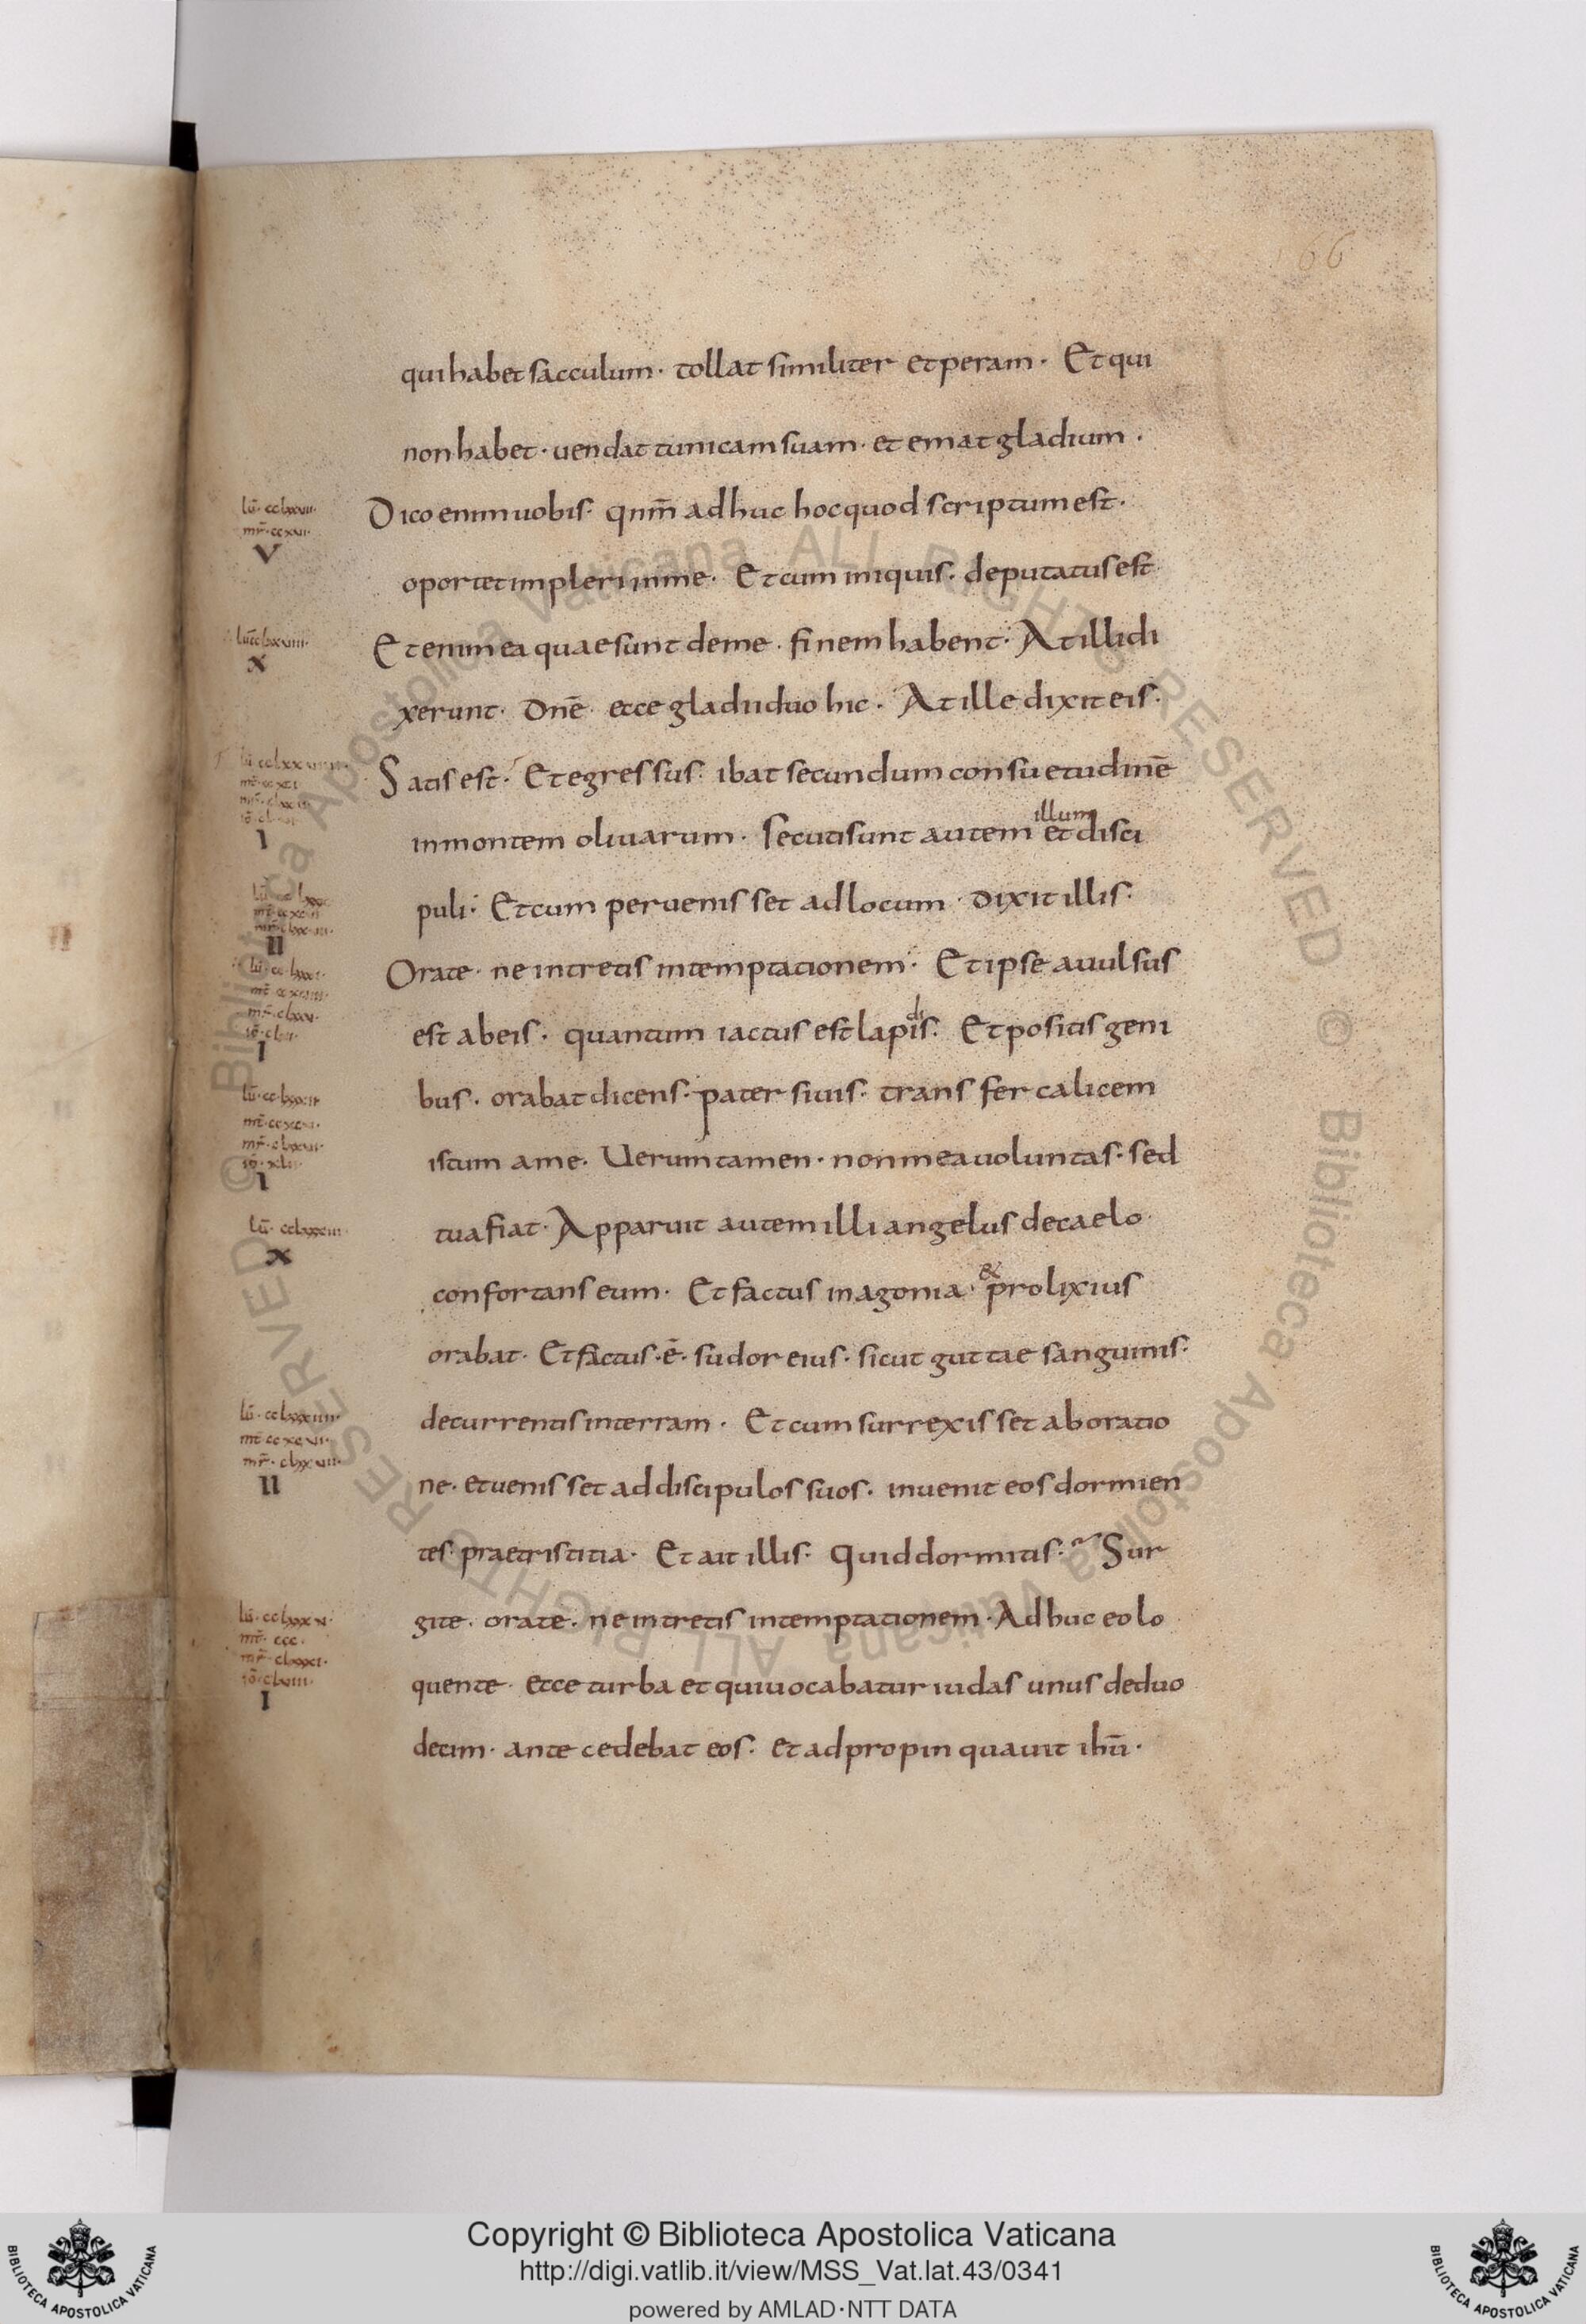 66
qui habet sacculum · tollat similiter et peram · Et qui
non habet · uendat tunicam suam · et emat gladium ·
Dico enim uobis · qnm̄ adhuc hoc quod scriptum est ·
oportet impleri inme · Et cum iniquis · deputatus est
Etenim ea quae sunt deme · finem habent · At illi di
xerunt · dnē ecce gladii duo hic · At ille dixit eis ·
Satis est · Et egressus · ibat secundum consuetudinē
inmontem oliuarum · Secuti sunt autem illum et disci
puli · Et cum peruenisset adlocum · dixit illis ·
Orate · ne intretis intemptationem · Et ipse auulsus
est abeis · quantum iactus est lapidis · Et positis geni
bus · orabat dicens · pater siuis · transfer calicem
istum ame · Uerumtamen · non mea uoluntas · sed
tua fiat · Apparuit autem illi angelus decaelo
confortans eum · Et factus inagonia · & prolixius
orabat · Et factus · ē · sudor eius · sicut guttae sanguinis ·
decurrentis interram · Et cum surrexisset aboratio
ne · et uenisset ad discipulos suos · inuenit eos dormien
tes · prae tristitia · Et ait illis · Quid dormitis · Sur
gite · orate · ne intretis intemptationem · Adhuc eo lo
quente · ecce turba et qui uocabatur iudas unus deduo
decim · antecedebat eos · et adpropinquauit ihū ·
V
X
I
II
I
I
X
II
mt̄ · ccc ·
I
Copyright © Biblioteca Apostolica Vaticana
http://digi.vatlib.it/view/MSS_Vat.lat.43/0341
powered by AMLAD·NTT DATA
BIBLIOTECA APOSTOLICA VATICANA
BIBLIOTECA APOSTOLICA VATICANA
© Biblioteca Apostolica Vaticana ALL RIGHTS RESERVED © Biblioteca Apostolica Vaticana ALL RIGHTS RESERVED